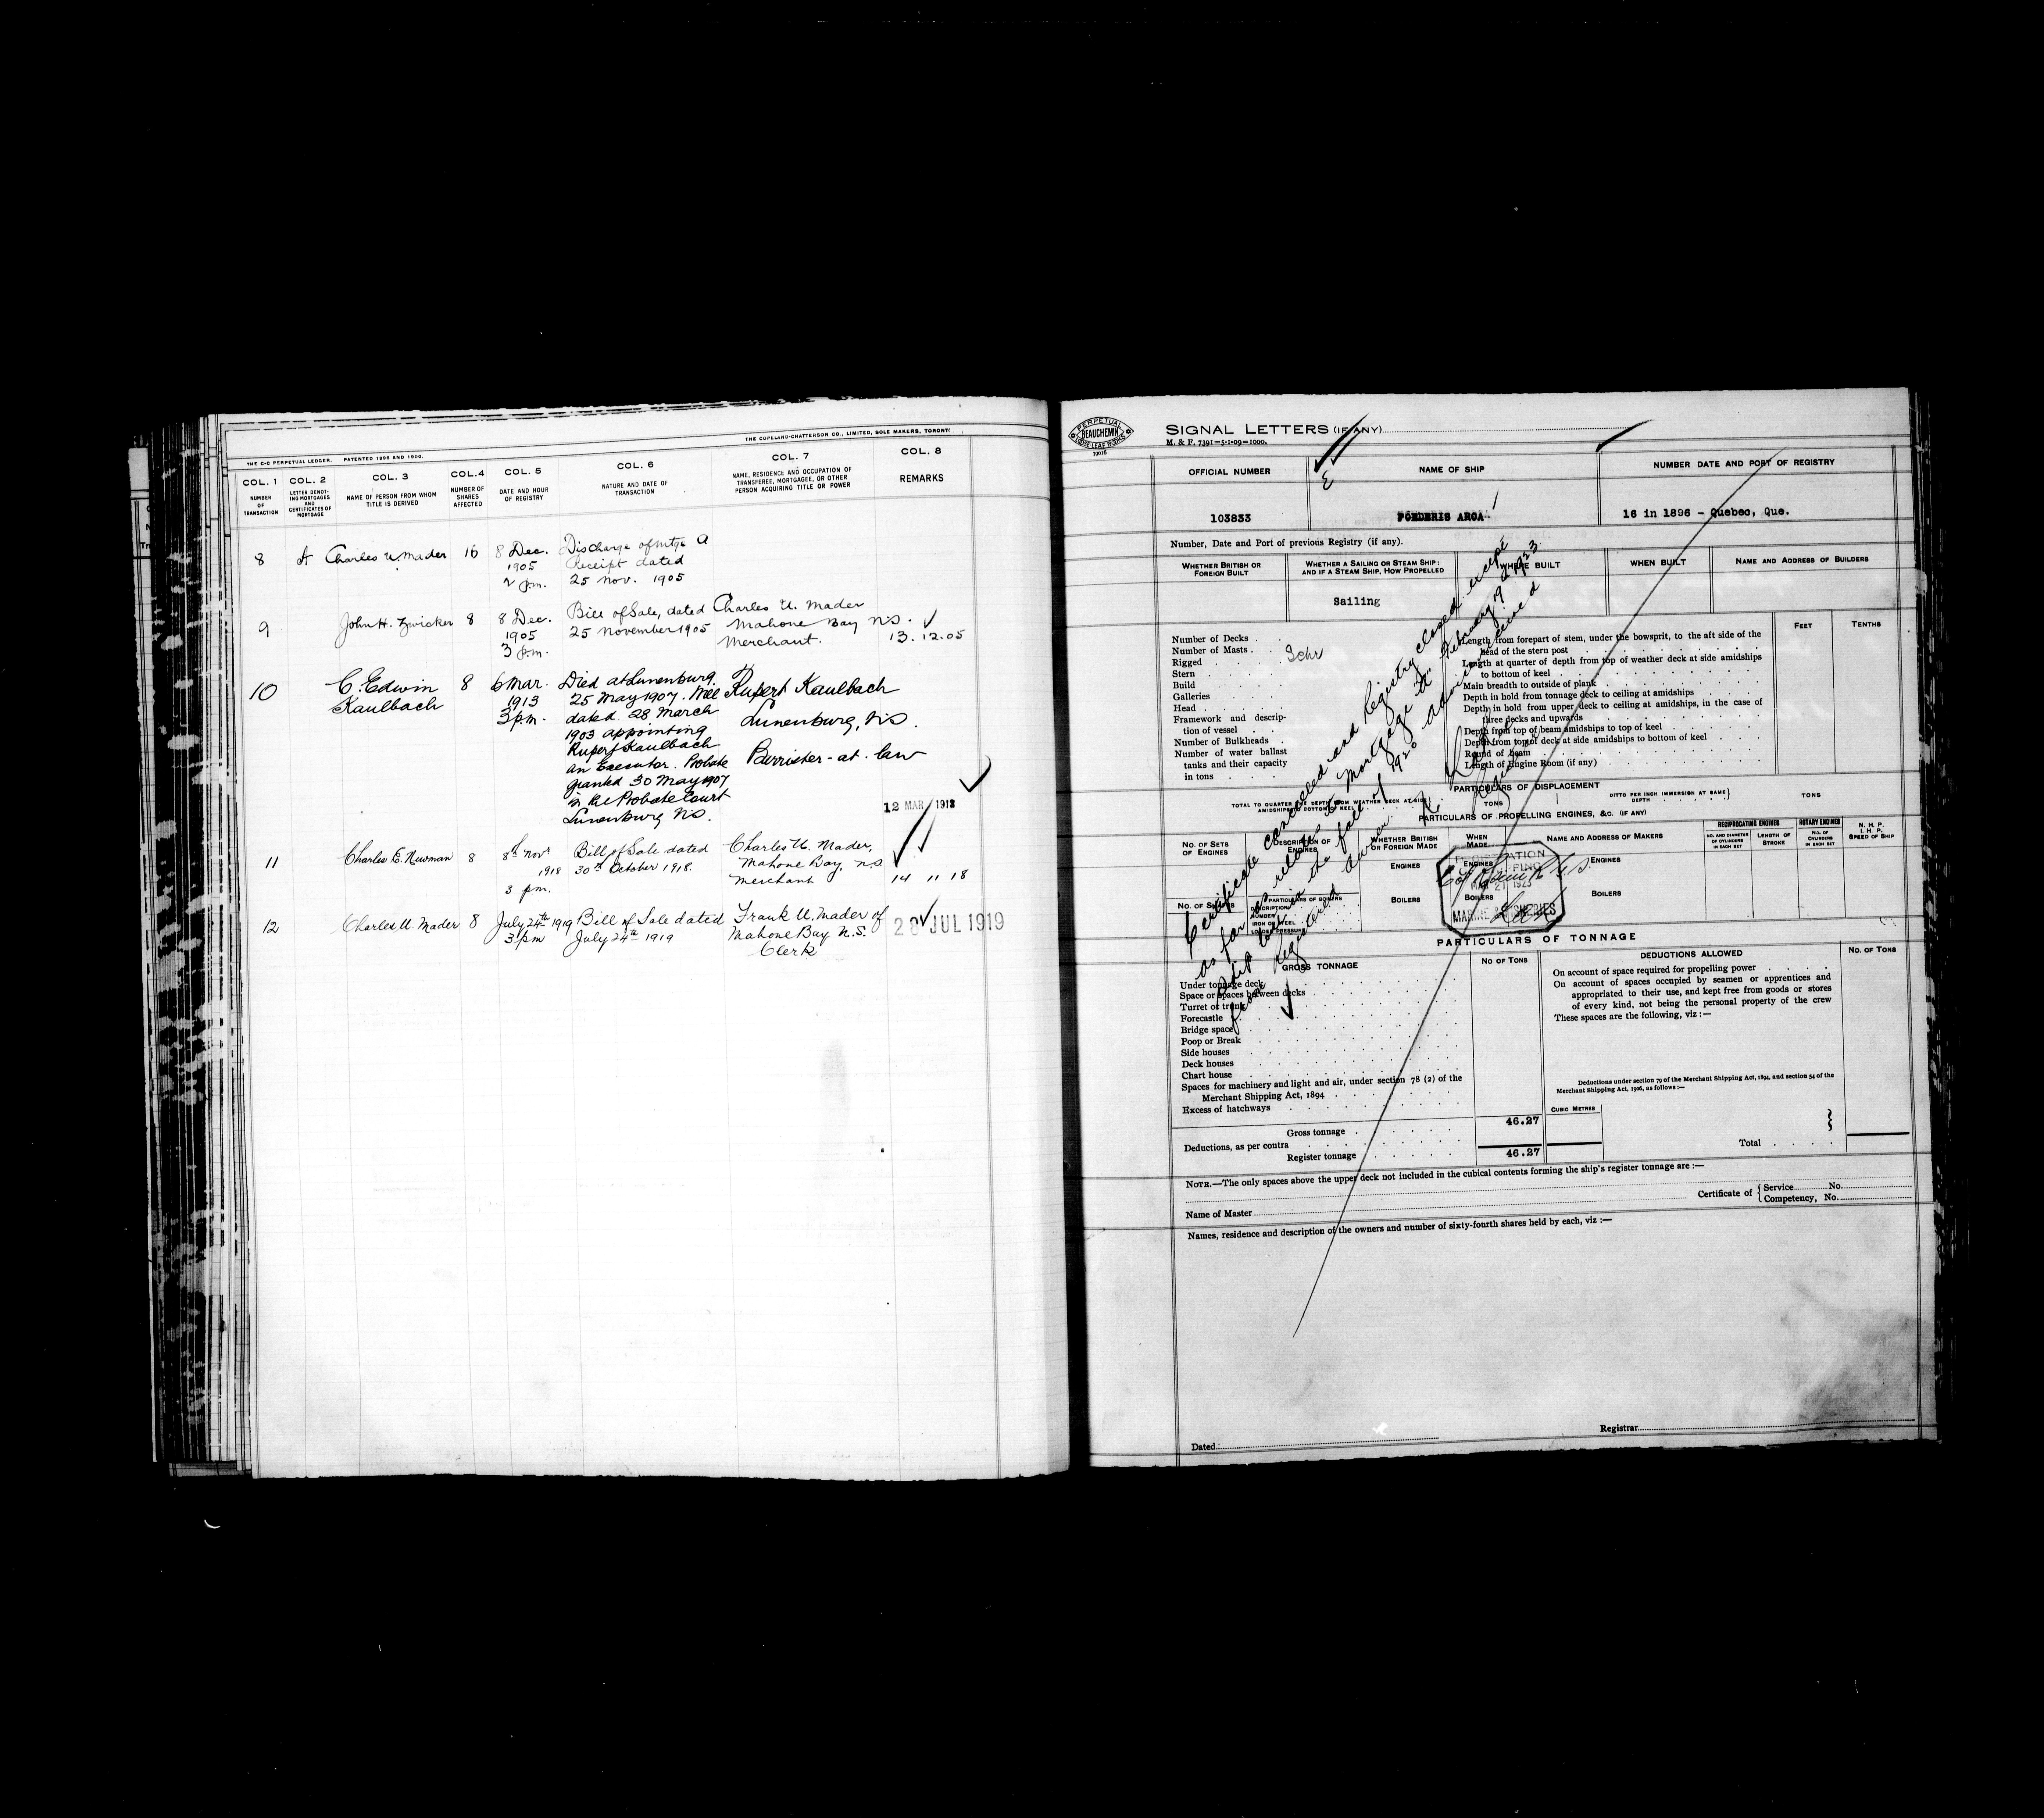 THE COPELAND-CHATTERSON CO., LIMITED, SOLE MAKERS, TORONTO
THE C-C PERPETUAL LEDGER. PATENTED 1896 AND 1900.
COL. 1 COL. 2 COL. 3 COL. 4 COL. 5 COL. 6 COL. 7 COL. 8
NUMBER OF TRANSACTION
LETTER DENOTING MORTGAGES AND CERTIFICATES OF MORTGAGE
NAME OF PERSON FROM WHOM TITLE IS DERIVED
NUMBER OF SHARES AFFECTED
DATE AND HOUR OF REGISTRY
NATURE AND DATE OF TRANSACTION
NAME, RESIDENCE AND OCCUPATION OF TRANSFEREE, MORTGAGEE, OR OTHER PERSON ACQUIRING TITLE OR POWER
REMARKS
8 A Charles U. Mader 16 8 Dec. Discharge of Mtge A
1905 Receipt dated
2 p.m. 25 Nov. 1905
9 John H. Zwicker 8 8 Dec. Bill of Sale, dated Charles U. Mader
1905 25 November 1905 Mahone Bay N.S.
3 p.m. Merchant. 13.12.05
10 C. Edwin 8 6 Mar. Died at Lunenburg
Kaulbach 1913 25 May 1907. Will Rupert Kaulbach
3 p.m. dated 28 March Lunenburg, N.S.
1903 appointing
Rupert Kaulbach
an Executor. Probate Barrister-at-law
granted 30 May 1907
in the Probate Court 12 MAR 1913
Lunenburg N.S.
11 Charles E. Newman 8 8th Novr Bill of Sale dated Charles U. Mader,
1918 30th October 1918. Mahone Bay, N.S.
3 pm. Merchant 14 11 18
12 Charles U. Mader 8 July 24th 1919 Bill of Sale dated Frank U. Mader of
3 pm July 24th 1919 Mahone Bay N.S. 28 JUL 1919
Clerk
PERPETUAL
BEAUCHEMIN
LOOSE LEAF BOOKS
SIGNAL LETTERS (IF ANY)
M. & F. 7391=5-1-09=1000.
OFFICIAL NUMBER NAME OF SHIP NUMBER DATE AND PORT OF REGISTRY
103833 FOEDERIS ARCA 16 in 1896 - Quebec, Que.
Number, Date and Port of previous Registry (if any).
WHETHER BRITISH OR FOREIGN BUILT
WHETHER A SAILING OR STEAM SHIP: AND IF A STEAM SHIP, HOW PROPELLED
WHERE BUILT
WHEN BUILT
NAME AND ADDRESS OF BUILDERS
Sailing
Number of Decks
Number of Masts
Rigged Schr
Stern
Build
Galleries
Head
Framework and description of vessel
Number of Bulkheads
Number of water ballast tanks and their capacity in tons
FEET TENTHS
Length from forepart of stem, under the bowsprit, to the aft side of the head of the stern post
Length at quarter of depth from top of weather deck at side amidships to bottom of keel
Main breadth to outside of plank
Depth in hold from tonnage deck to ceiling at amidships
Depth in hold from upper deck to ceiling at amidships, in the case of three decks and upwards
Depth from top of beam amidships to top of keel
Depth from top of deck at side amidships to bottom of keel
Round of beam
Length of Engine Room (if any)
Certificate cancelled and Registry closed except
as far as relates to Mortgage "A" February 19th 1923
Ship lost in the fall of 1920 advice received
from registered owner.
Registrar
PARTICULARS OF DISPLACEMENT
TOTAL TO QUARTER THE DEPTH FROM WEATHER DECK AT SIDE AMIDSHIPS TO BOTTOM OF KEEL TONS
DITTO PER INCH IMMERSION AT SAME DEPTH TONS
PARTICULARS OF PROPELLING ENGINES, &C. (IF ANY)
No. of Sets of Engines
Description of Engines
Whether British or Foreign Made
When Made
Name and Address of Makers
RECIPROCATING ENGINES
No. and Diameter of Cylinders in each set
Length of Stroke
ROTARY ENGINES
No. of Cylinders in each set
N. H. P.
I. H. P.
Speed of Ship
ENGINES ENGINES ENGINES
No. of Shafts
PARTICULARS OF BOILERS
DESCRIPTION
NUMBER
IRON OR STEEL
LOADED PRESSURE
BOILERS BOILERS BOILERS
MAR 21 1923
MARINE & FISHERIES
PARTICULARS OF TONNAGE
GROSS TONNAGE No of Tons
Under tonnage deck
Space or spaces between decks
Turret or trunk
Forecastle
Bridge space
Poop or Break
Side houses
Deck houses
Chart house
Spaces for machinery and light and air, under section 78 (2) of the Merchant Shipping Act, 1894
Excess of hatchways
Gross tonnage 46.27
Deductions, as per contra
Register tonnage 46.27
CUBIC METRES
DEDUCTIONS ALLOWED No. of Tons
On account of space required for propelling power
On account of spaces occupied by seamen or apprentices and appropriated to their use, and kept free from goods or stores of every kind, not being the personal property of the crew
These spaces are the following, viz :—
Deductions under section 79 of the Merchant Shipping Act, 1894, and section 54 of the Merchant Shipping Act, 1906, as follows :—
Total
NOTE.—The only spaces above the upper deck not included in the cubical contents forming the ship's register tonnage are :—
Name of Master
Certificate of { Service No.
Competency, No.
Names, residence and description of the owners and number of sixty-fourth shares held by each, viz :—
Dated
Registrar